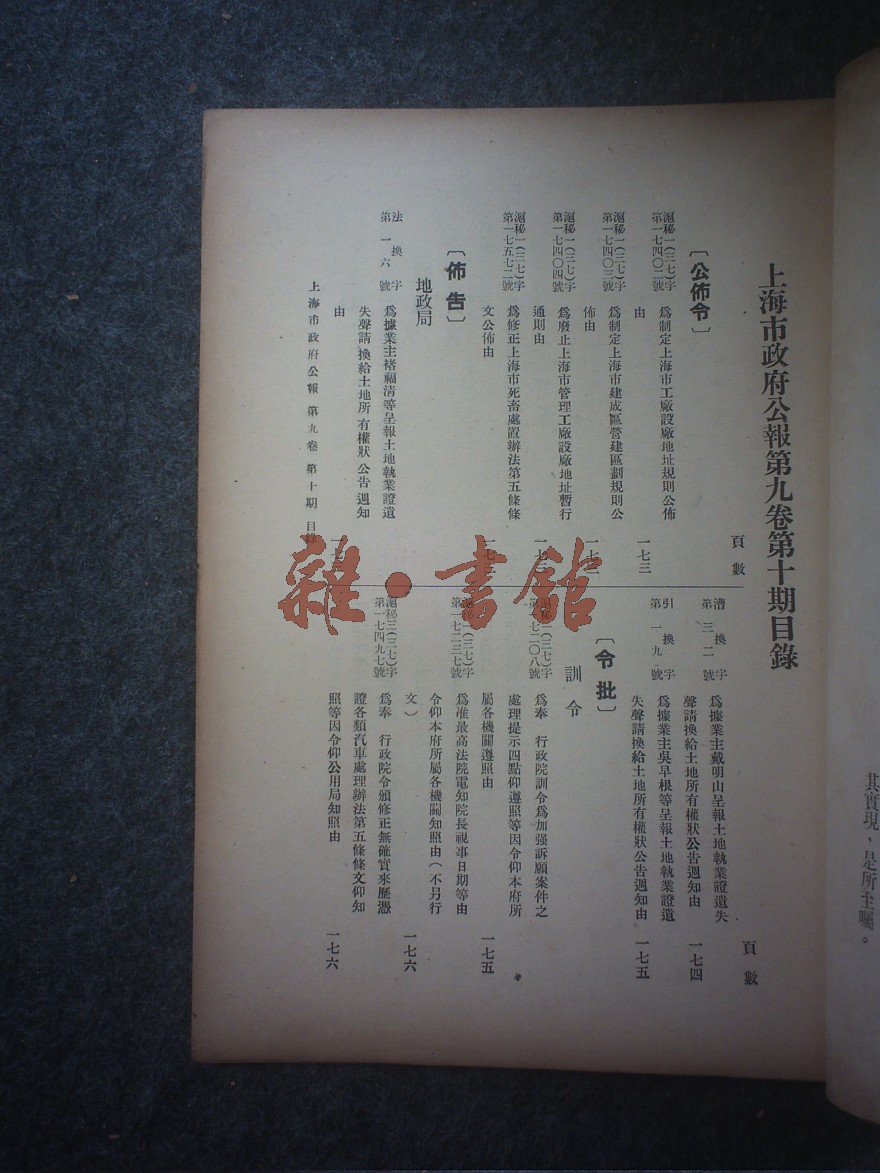 上海市政府公報第九卷第十期目錄
頁數
〔公佈令〕
滬秘一(三七)字
第一七四〇二號
爲制定上海市工廠設廠地址規則公佈
由
一七三
滬秘一(三七)字
第一七四〇三號
爲制定上海市建成區營建區劃規則公
佈由
一七
滬秘一(三七)字
第一七四〇四號
爲廢止上海市管理工廠設廠地址暫行
通則由
一七
滬秘一(三七)字
第一七五七二號
爲修正上海市死畜處置辦法第五條條
文公佈由
〔佈告〕
地政局
法換字
第一六號
爲據業主褚福清等呈報土地執業證遺
失聲請換給土地所有權狀公告週知
由
一七
上海市政府公報 第九卷 第十期 目錄
頁數
漕換字
第三二號
爲據業主戴明山呈報土地執業證遺失
聲請換給土地所有權狀公告週知由
一七四
引換字
第一九號
爲據業主吳早根等呈報土地執業證遺
失聲請換給土地所有權狀公告週知由
一七五
〔令批〕
訓令
(三七)字
七二〇八號
爲奉 行政院訓令爲加强訴願案件之
處理提示四點仰遵照等因令仰本府所
屬各機關遵照由
一七五
(三七)字
第一七二三七號
爲准最高法院電知院長視事日期等由
令仰本府所屬各機關知照由(不另行
文)
一七六
滬秘三(三七)字
第一七四九七號
爲奉 行政院令頒修正無確實來歷憑
證各類汽車處理辦法第五條條文仰知
照等因令仰公用局知照由
一七六
其實現，是所至囑。
雜·書館